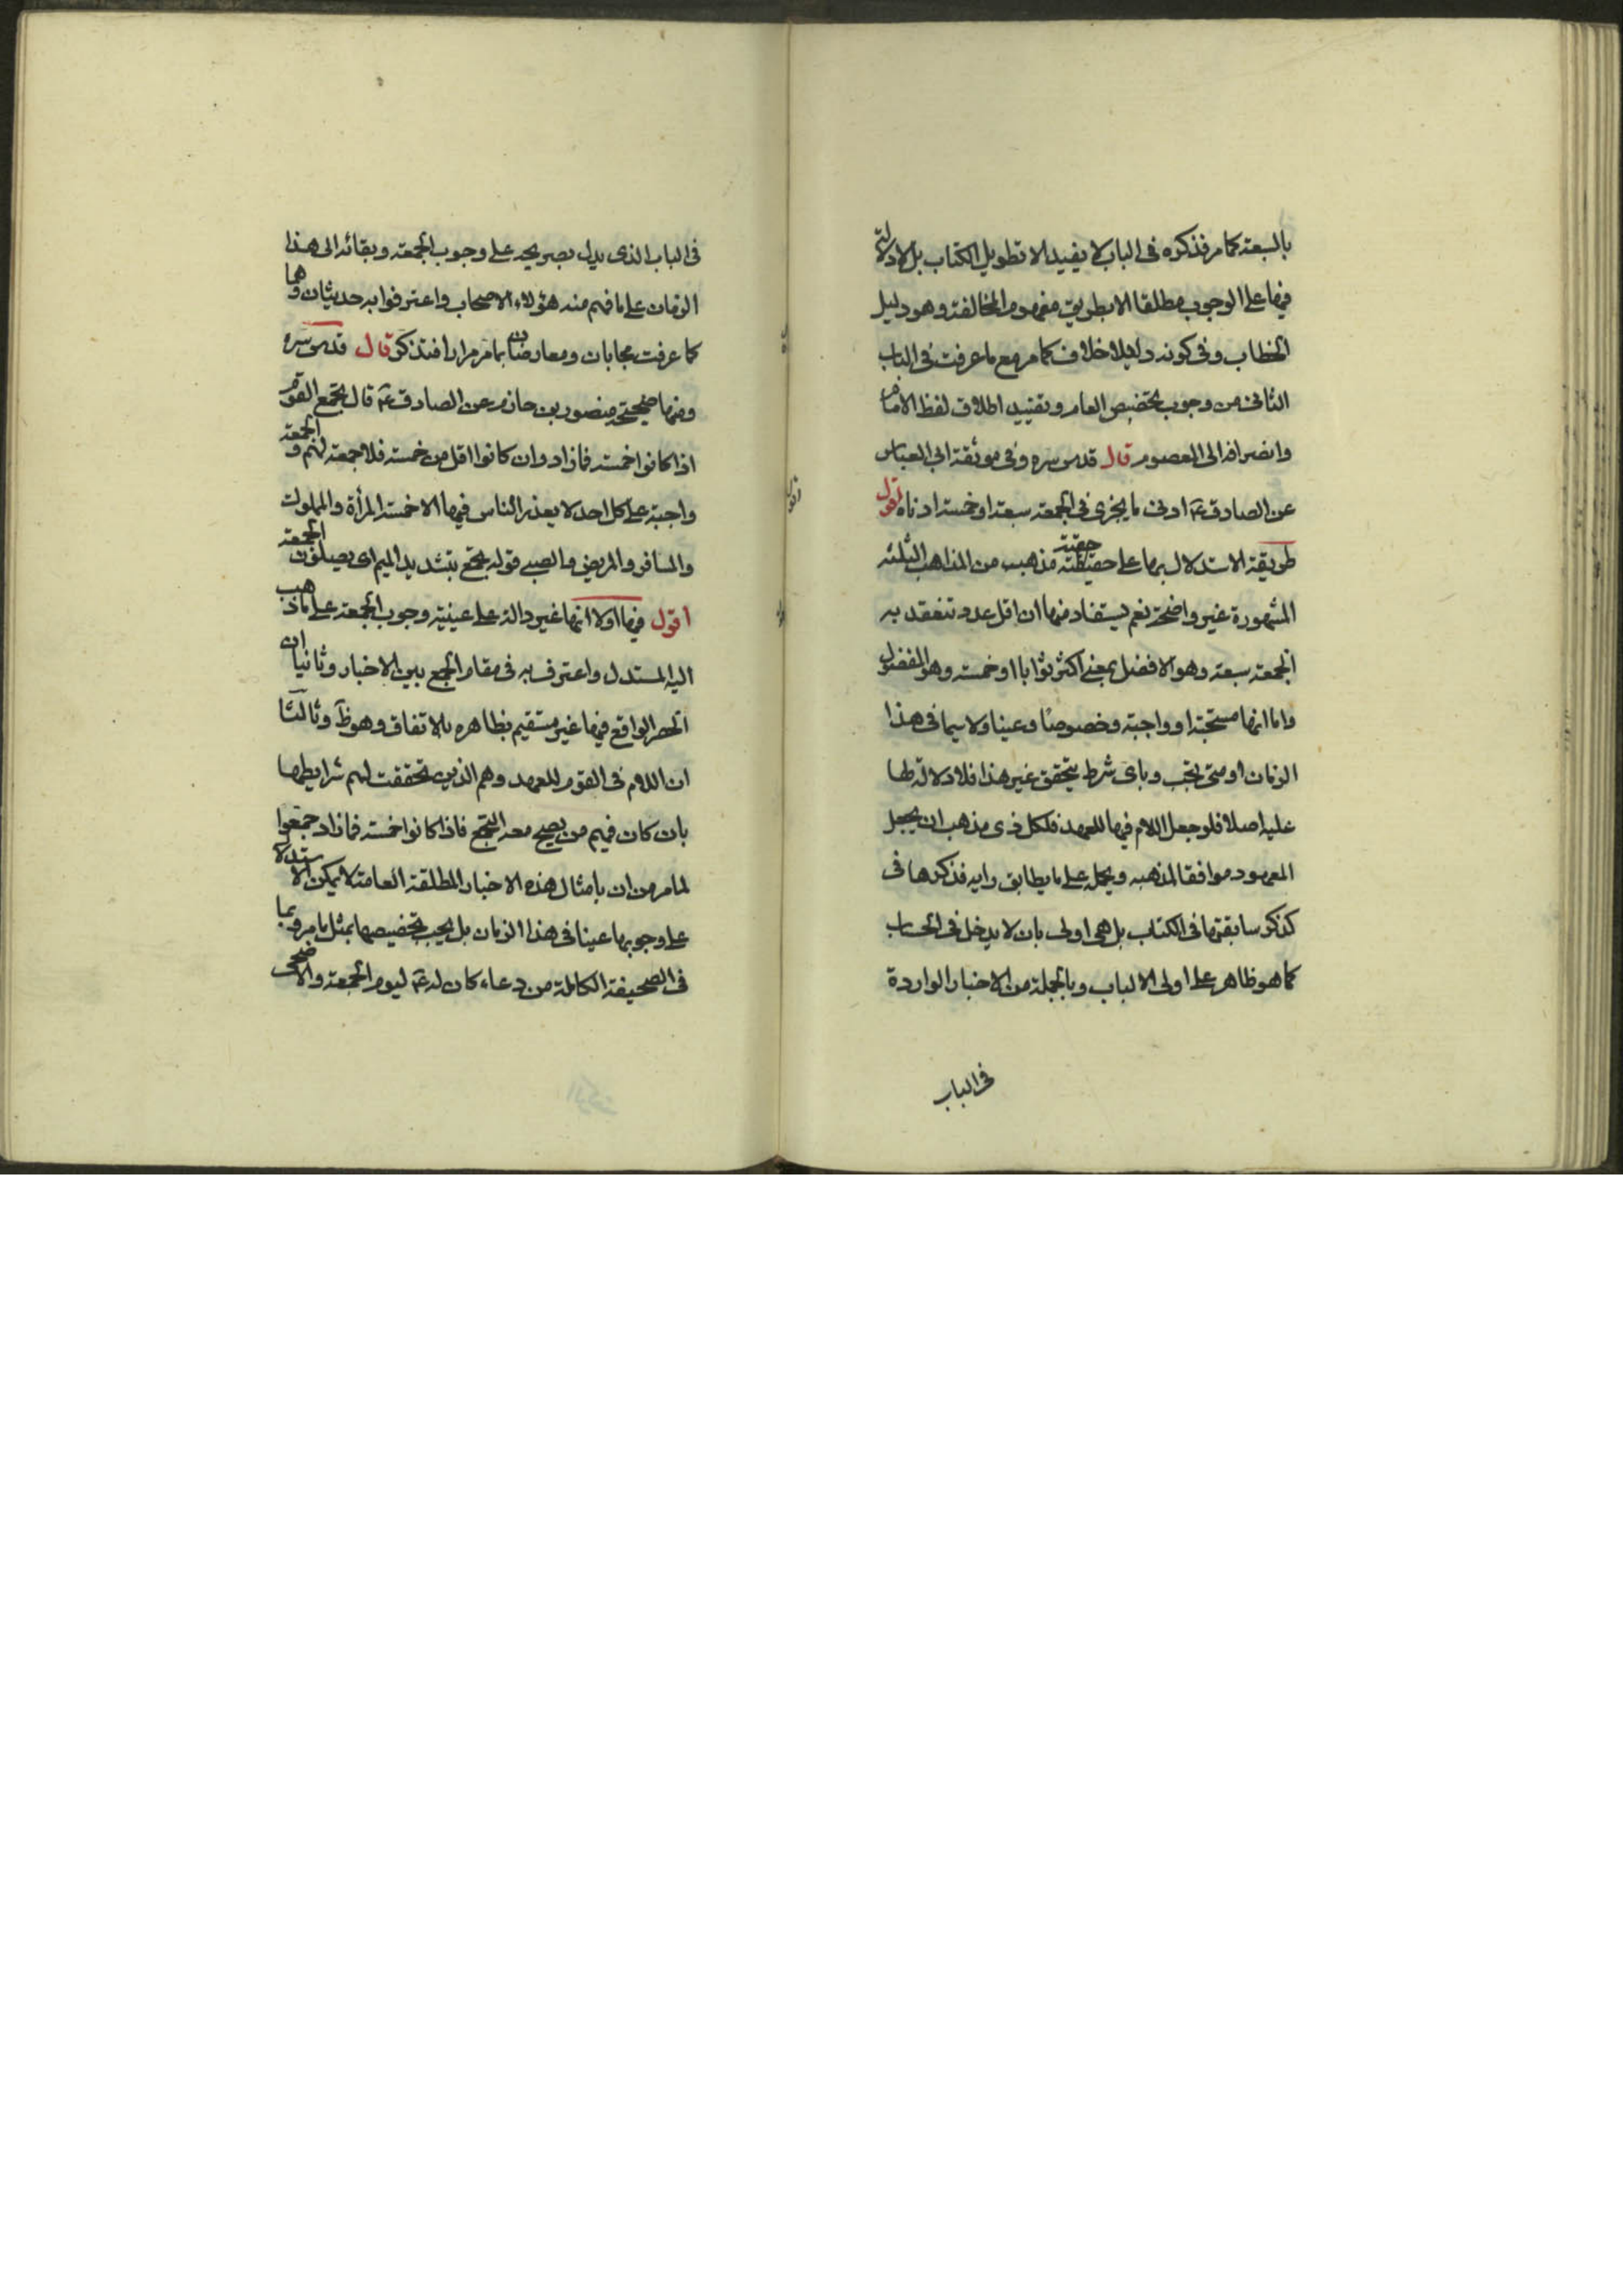 بالسبعة كما مر فذكره فى الباب لا يفيد الا تطويل الكتاب بل لا دلالة
فيها على الوجوب مطلقا الا بطريق مفهوم المخالفة وهو دليل
الخطاب وفى كونه دليلا خلاف كما مر مع ما عرفت فى الباب
الثانى من وجوب تخصيص العام وتقييد اطلاق لفظ الامام
وانصرافه الى المعصوم قال قدس سره وفى موثقة ابى العباس
عن الصادق ع ادنى ما يجزى فى الجمعة سبعة او خمسة ادناه اقول
طريقة الاستدلال بها على حقية مذهب من المذاهب الثلثة
المشهورة غير واضحة نعم يستفاد منها ان اقل عدد تنعقد به
الجمعة سبعة وهو الافضل بمعنى اكثر ثوابا او خمسة وهو المفضول
واما انها مستحبة او واجبة وخصوصا وعينا ولا سيما فى هذا
الزمان او متى تجب وباى شرط يتحقق غير هذا فلا دلالة لها
عليه اصلا فلو جعل اللام فيها للعهد فلكل ذى مذهب ان يجعل
المعهود موافقا لمذهبه ويحمله على ما يطابق رايه فذكرها فى
كذكر سابقتها فى الكتاب بل هى اولى بان لا يدخل فى الحساب
كما هو ظاهر على اولى الالباب وبالجملة من الاخبار الواردة
فى الباب
فى الباب الذى يدل بصريحه على وجوب الجمعة وبقائه الى هذا
الزمان على ما فهم منه هؤلاء الاصحاب واعترفوا به حديثان وهما
كما عرفت مجابان ومعارضان بما مر مرارا فتذكر قال قدس سره
ومنها صحيحة منصور بن حازم عن الصادق ع قال يجمع القوم
اذا كانوا خمسة فما زاد وان كانوا اقل من خمسة فلا جمعة لهم و الجمعة
واجبة على كل احد لا يعذر الناس فيها الا خمسة المرأة والمملوك
والمسافر والمريض والصبى قوله يجمع بتشديد الميم اى يصلون الجمعة
اقول فيها اولا انها غير دالة على عينية وجوب الجمعة على ما ذهب
اليه المستدل واعترف به فى مقام الجمع بين الاخبار وثانيا ان
الحصر الواقع فيها غير مستقيم بظاهره بالاتفاق وهو ظ وثالثا
ان اللام فى القوم للعهد وهم الذين تحققت لهم شرايطها
بان كان فيهم من يصح معه التجمع فاذا كانوا خمسة فما زاد جمعوا
لما مر من ان بامثال هذه الاخبار المطلقة العامة لا يمكن الاستدلال
على وجوبها عينا فى هذا الزمان بل يجب تخصيصها بمثل ما مر وبما
فى الصحيفة الكاملة من دعاء كان له ع ليوم الجمعة والاضحى